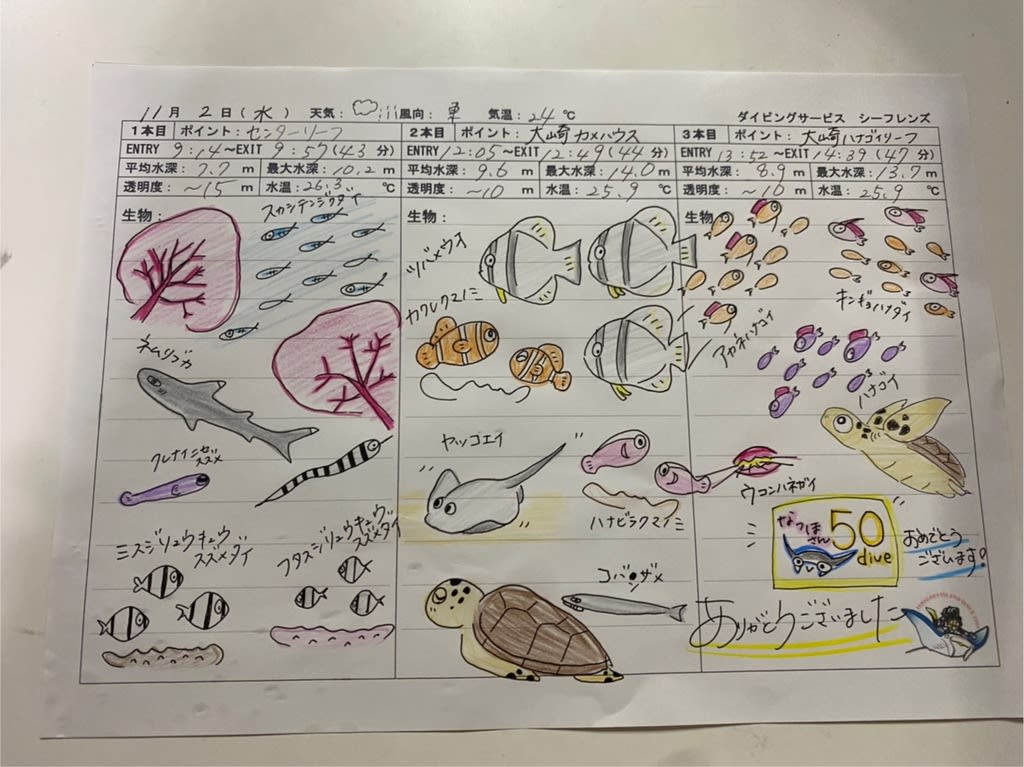 11月 2日(水) 天気: 風向: 東 気温: 24 ℃ ダイビングサービス シーフレンズ
1本目 ポイント: センターリーフ
ENTRY 9:14～EXIT 9:57(43 分)
平均水深: 7.7 m 最大水深: 10.2 m
透明度: ～15 m 水温: 26.3 ℃
生物:
スカシテンジクダイ
ネムリブカ
クレナイニセスズメ
ミスジリュウキュウスズメダイ
フタスジリュウキュウスズメダイ
2本目 ポイント: 大崎カメハウス
ENTRY 12:05～EXIT 12:49(44 分)
平均水深: 9.6 m 最大水深: 14.0 m
透明度: ～10 m 水温: 25.9 ℃
生物:
ツバメウオ
カクレクマノミ
ヤッコエイ
ハナビラクマノミ
コバンザメ
3本目 ポイント: 大崎ハナゴイリーフ
ENTRY 13:52～EXIT 14:39(47 分)
平均水深: 8.9 m 最大水深: 13.7 m
透明度: ～10 m 水温: 25.9 ℃
生物:
キンギョハナダイ
アカネハナゴイ
ハナゴイ
ウコンハネガイ
なつほさん
50
dive
おめでとう
ございます!
ありがとうございました